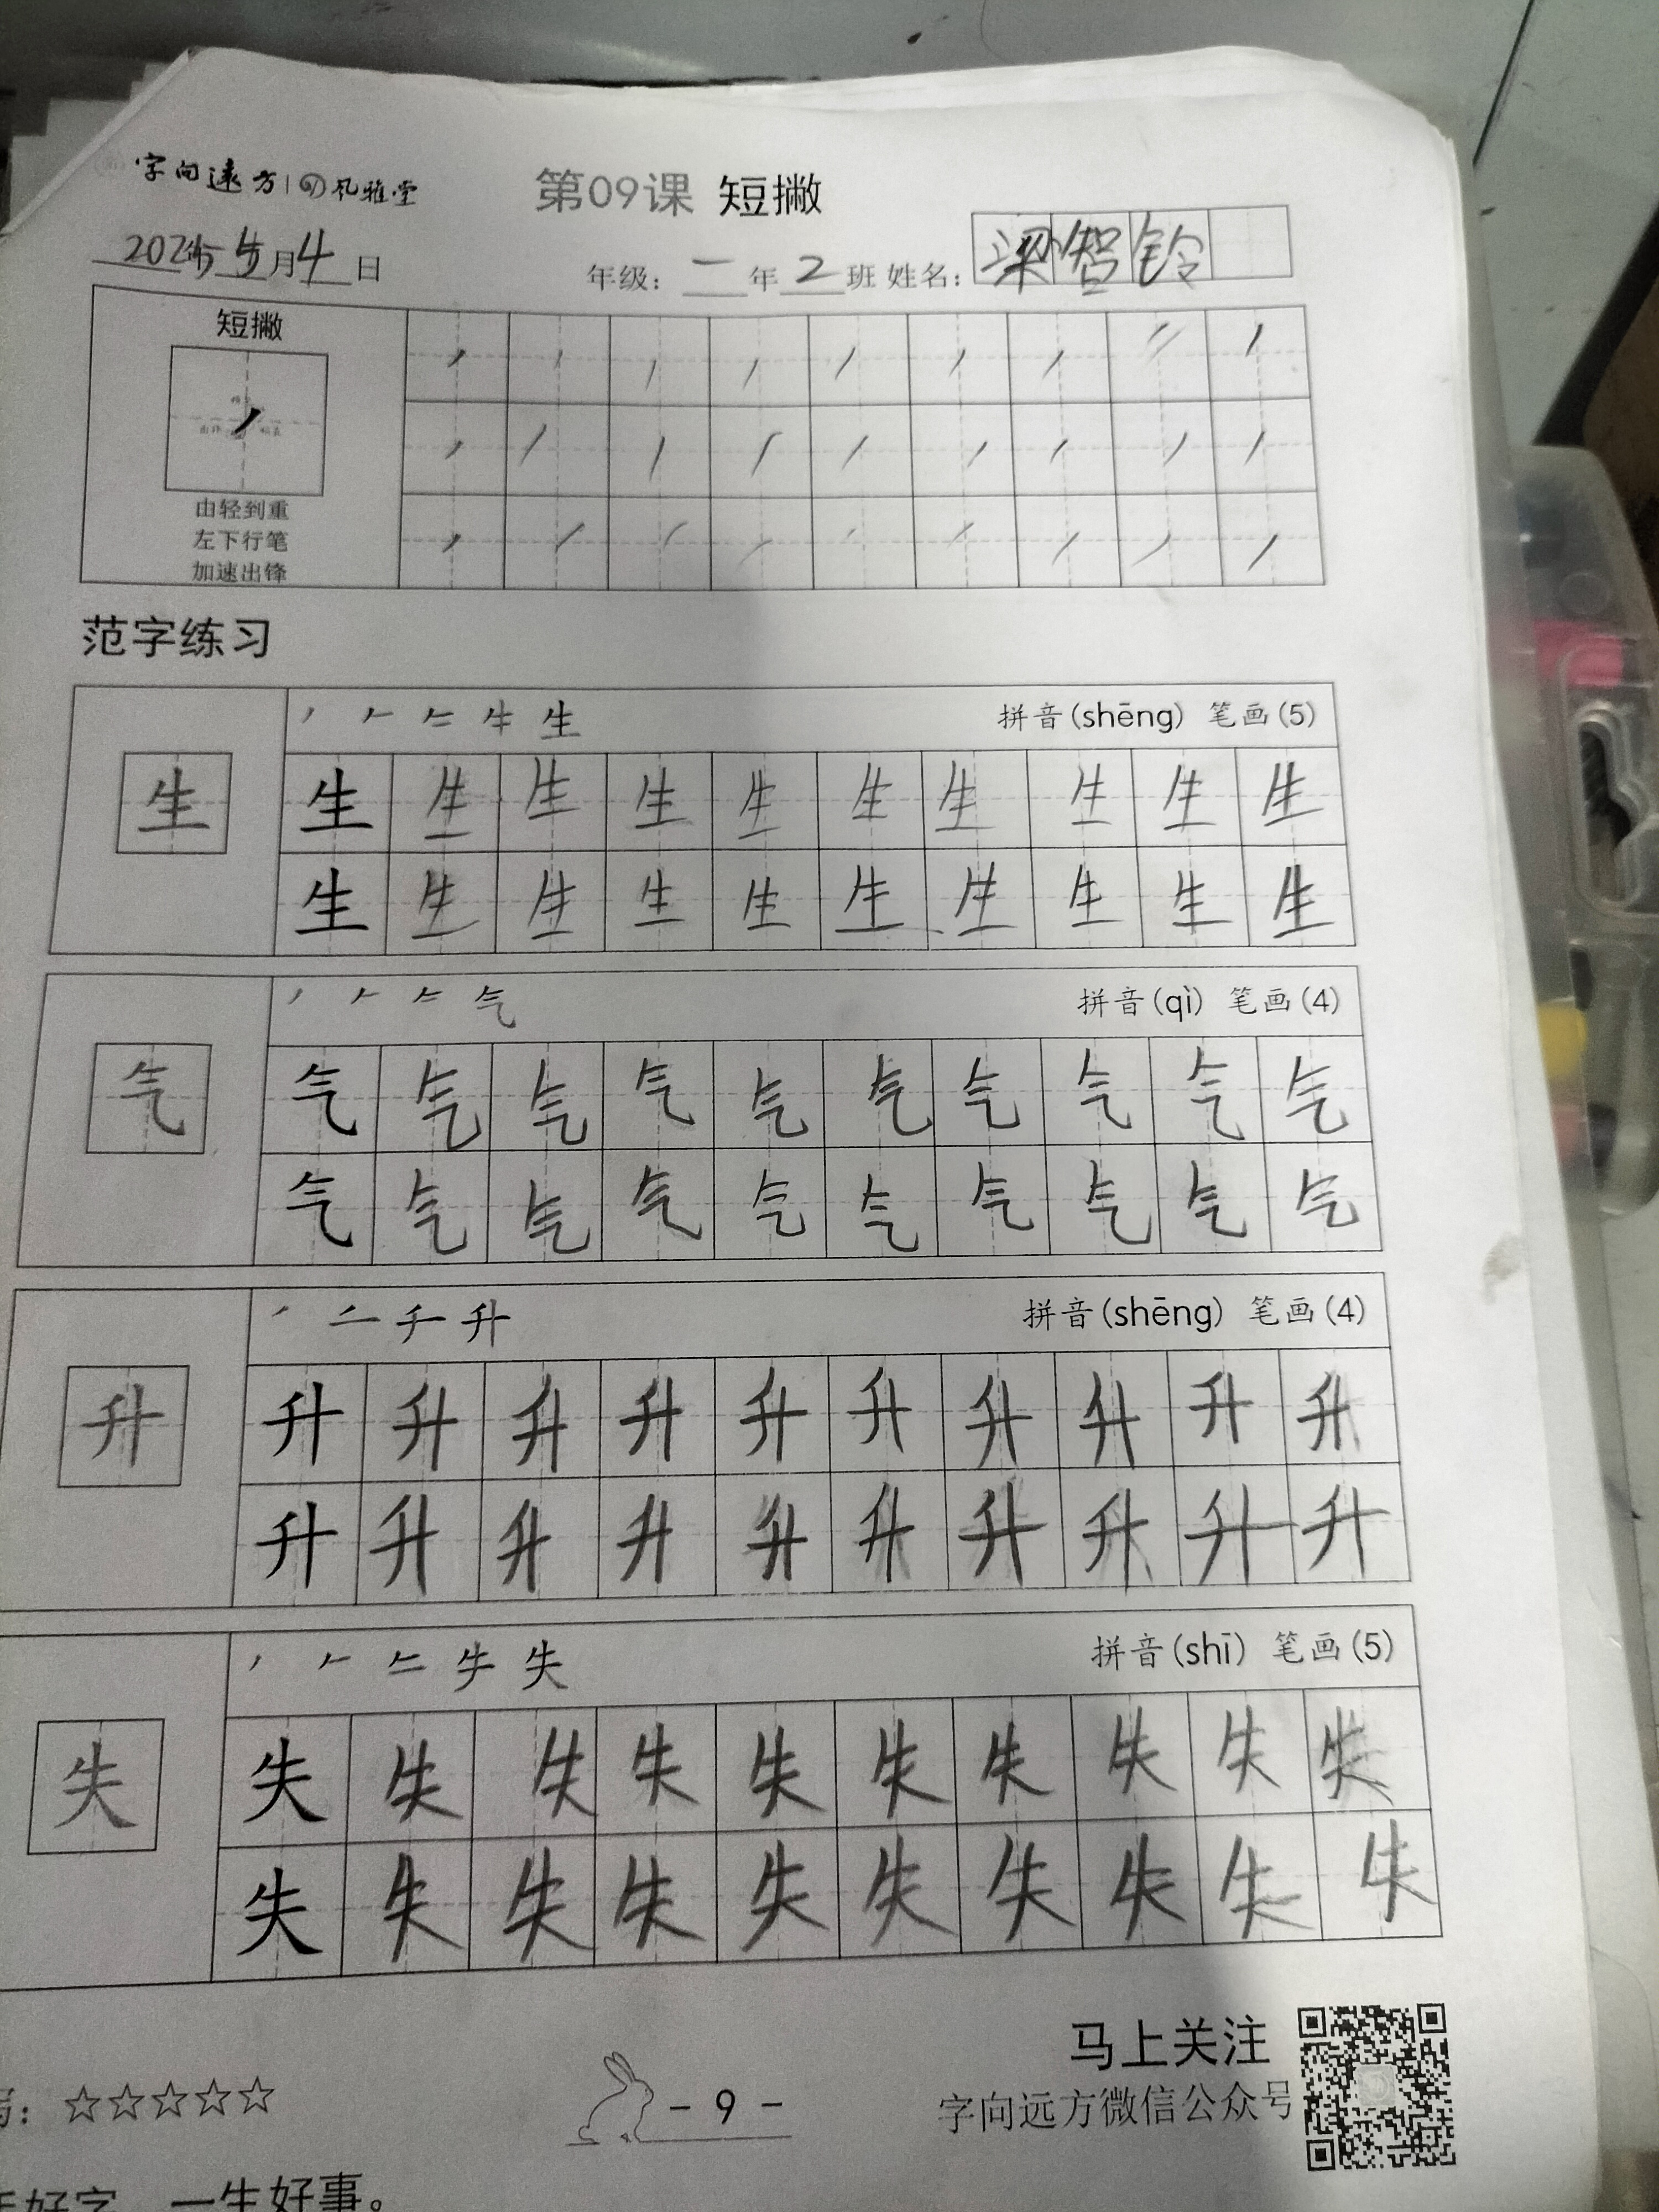 字向远方 风雅堂
第09课 短撇
月4日 年级：一年2班 姓名：梁智铃
短撇
由轻到重
左下行笔
加速出锋
范字练习
生 拼音(shēng) 笔画(5)
生 生 生 生 生 生 生 生 生 生 生
生 生 生 生 生 生 生 生 生 生
气 拼音(qì) 笔画(4)
气 气 气 气 气 气 气 气 气 气 气
气 气 气 气 气 气 气 气 气 气
升 拼音(shēng) 笔画(4)
升 升 升 升 升 升 升 升 升 升 升
升 升 升 升 升 升 升 升 升 升
失 拼音(shī) 笔画(5)
失 失 失 失 失 失 失 失 失 失 失
失 失 失 失 失 失 失 失 失 失
马上关注
- 9 -
字向远方微信公众号
好字 一生好事。